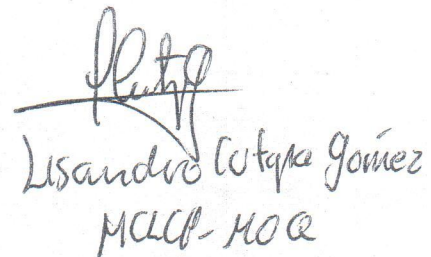 Lisandro Cutipa Gómez
MCLCP-MOQ